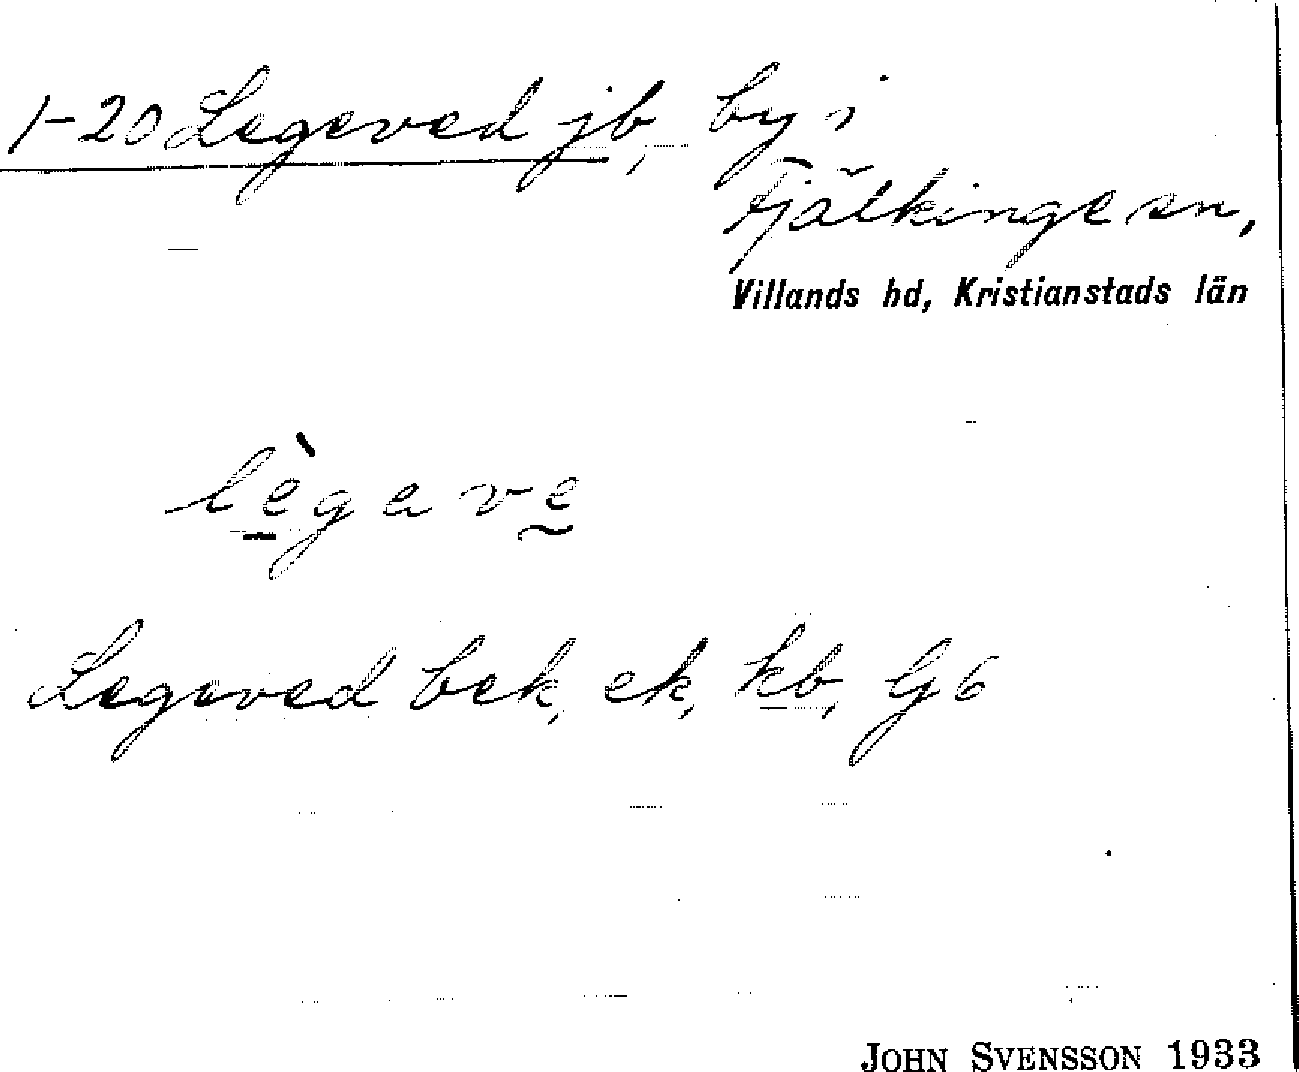 1-20 Legeved jb, by i
Fjälkinge sn,
Villands hd, Kristianstads län
lègave
Legeved bek, ek, kb, G 6
JOHN SVENSSON 1933